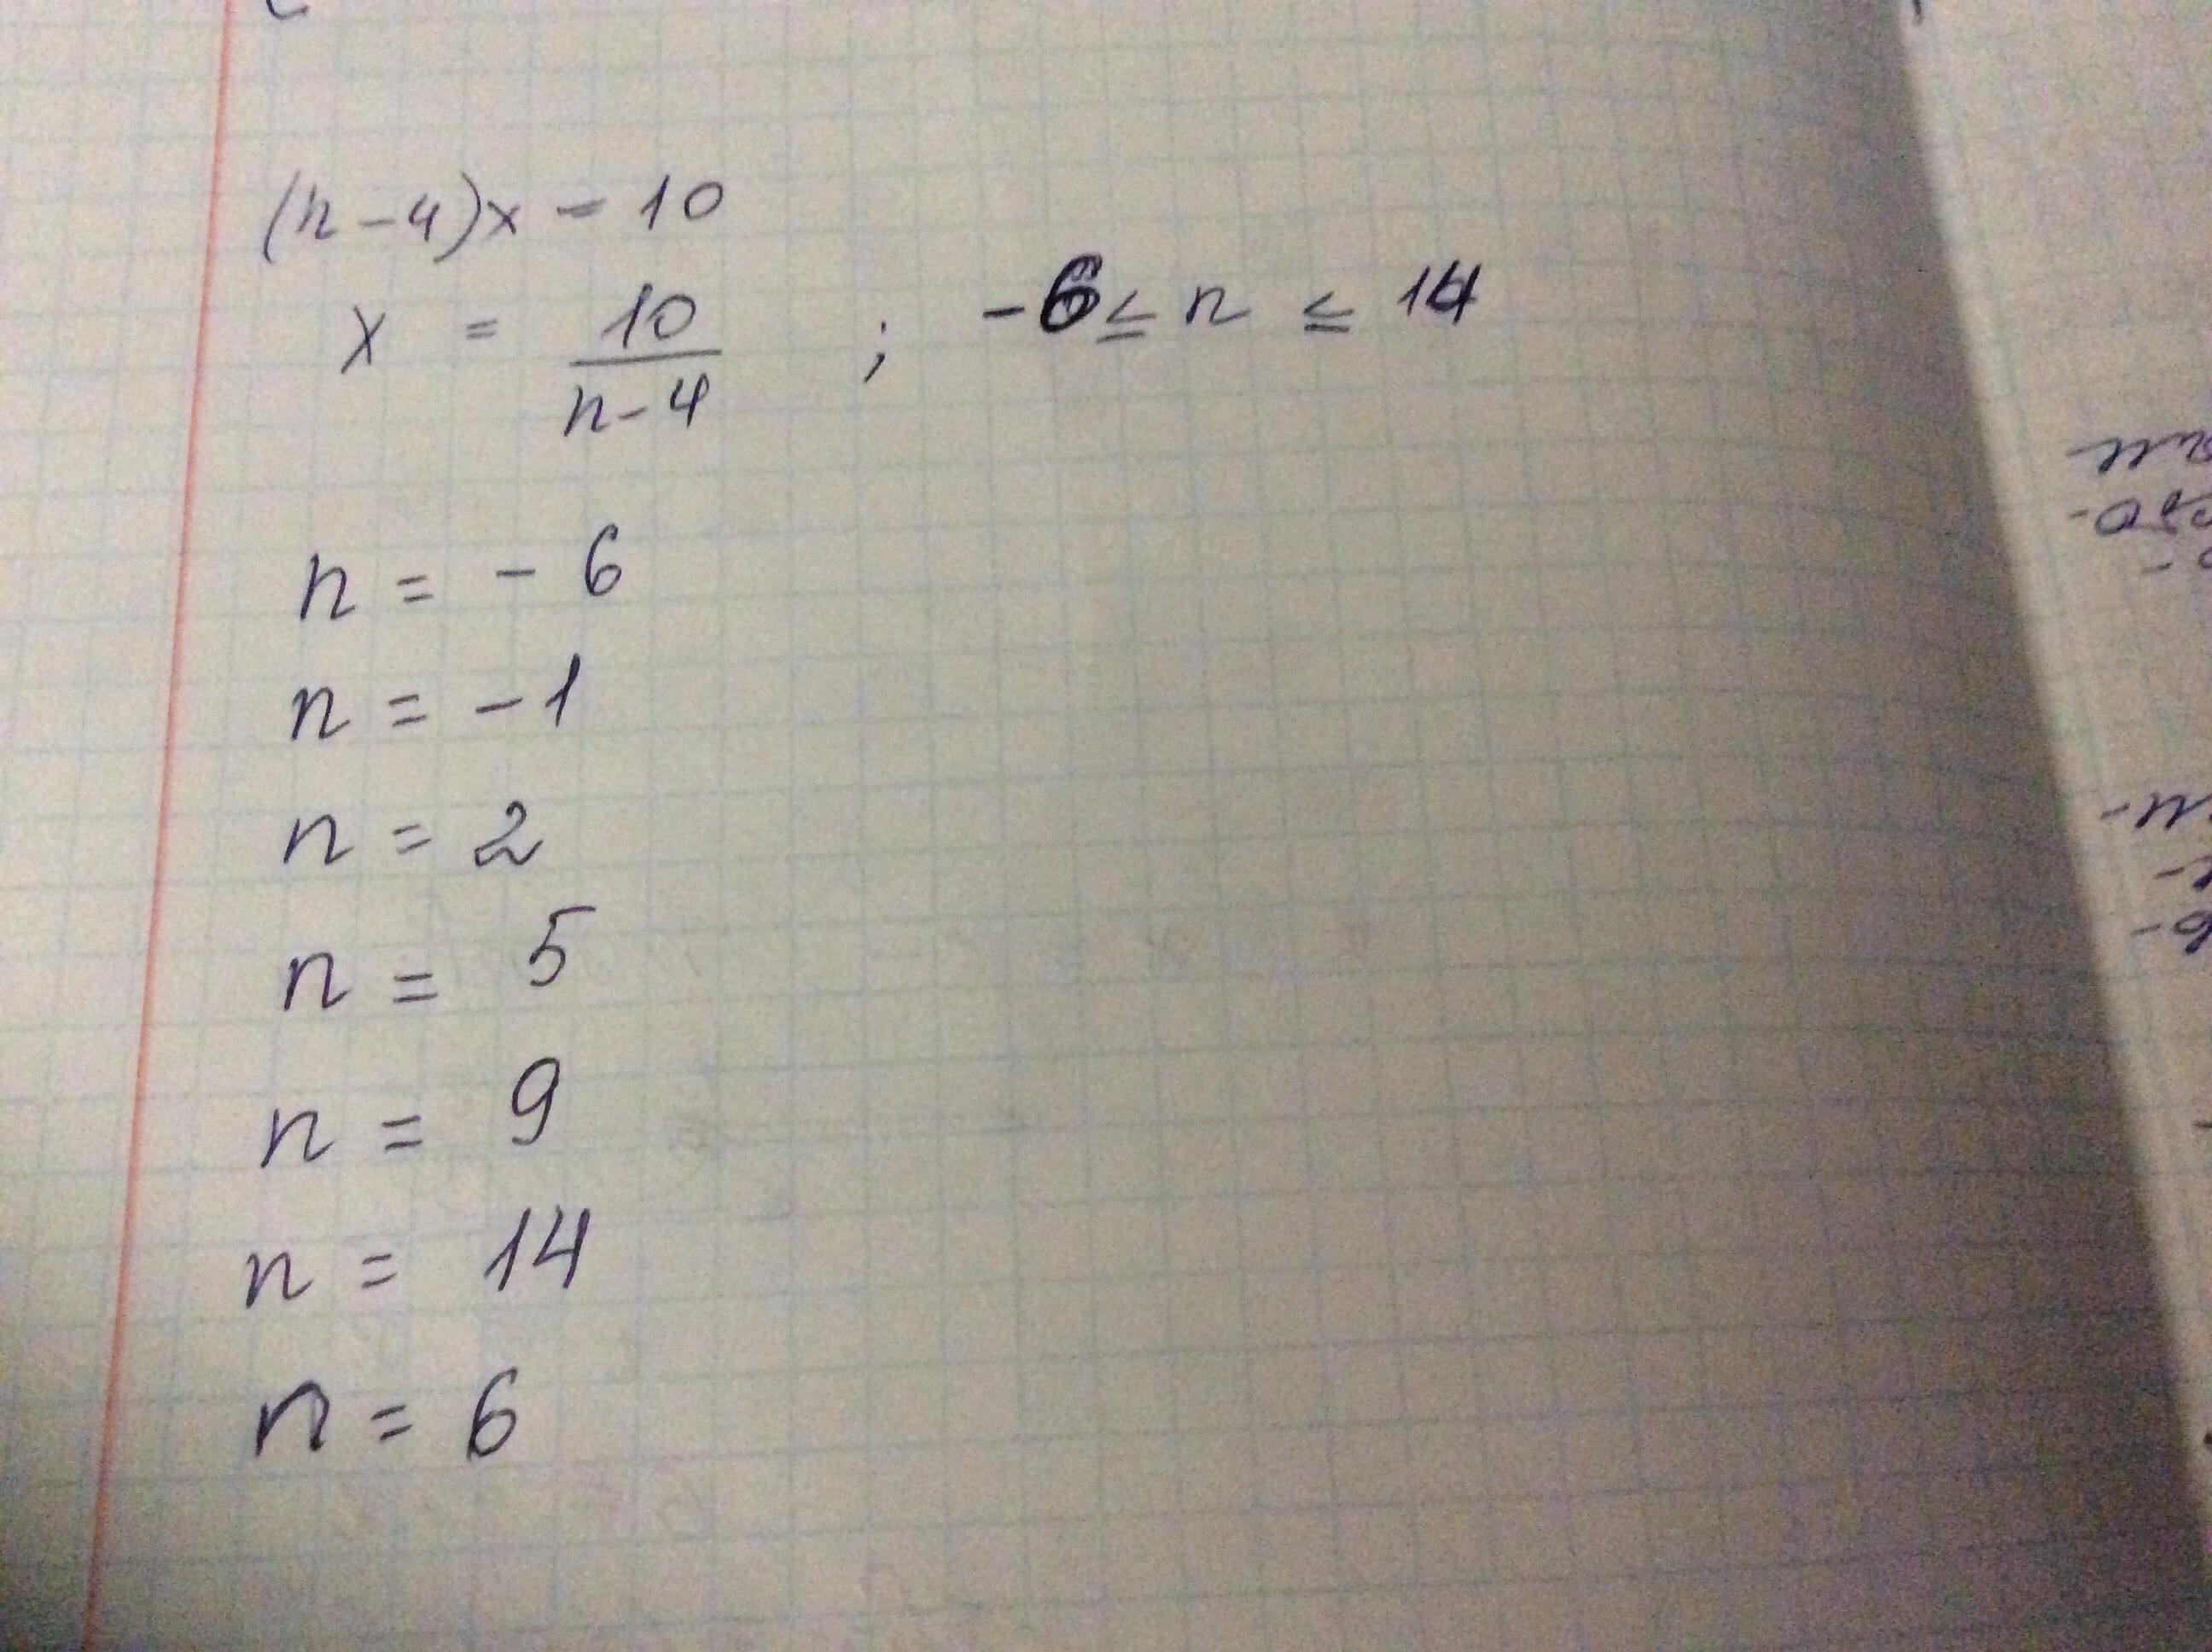 (n-4)x = 10
x = 10/(n-4) ; -6 ≤ n ≤ 14
n = -6
n = -1
n = 2
n = 5
n = 9
n = 14
n = 6